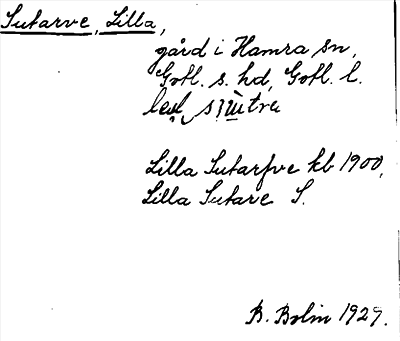 Sutarve, Lilla,
gård i Hamra sn,
Gotl. s. hd, Gotl. l.
Lilla Sutarfve kb 1900,
Lilla Sutare S.
B. Bolin 1927.